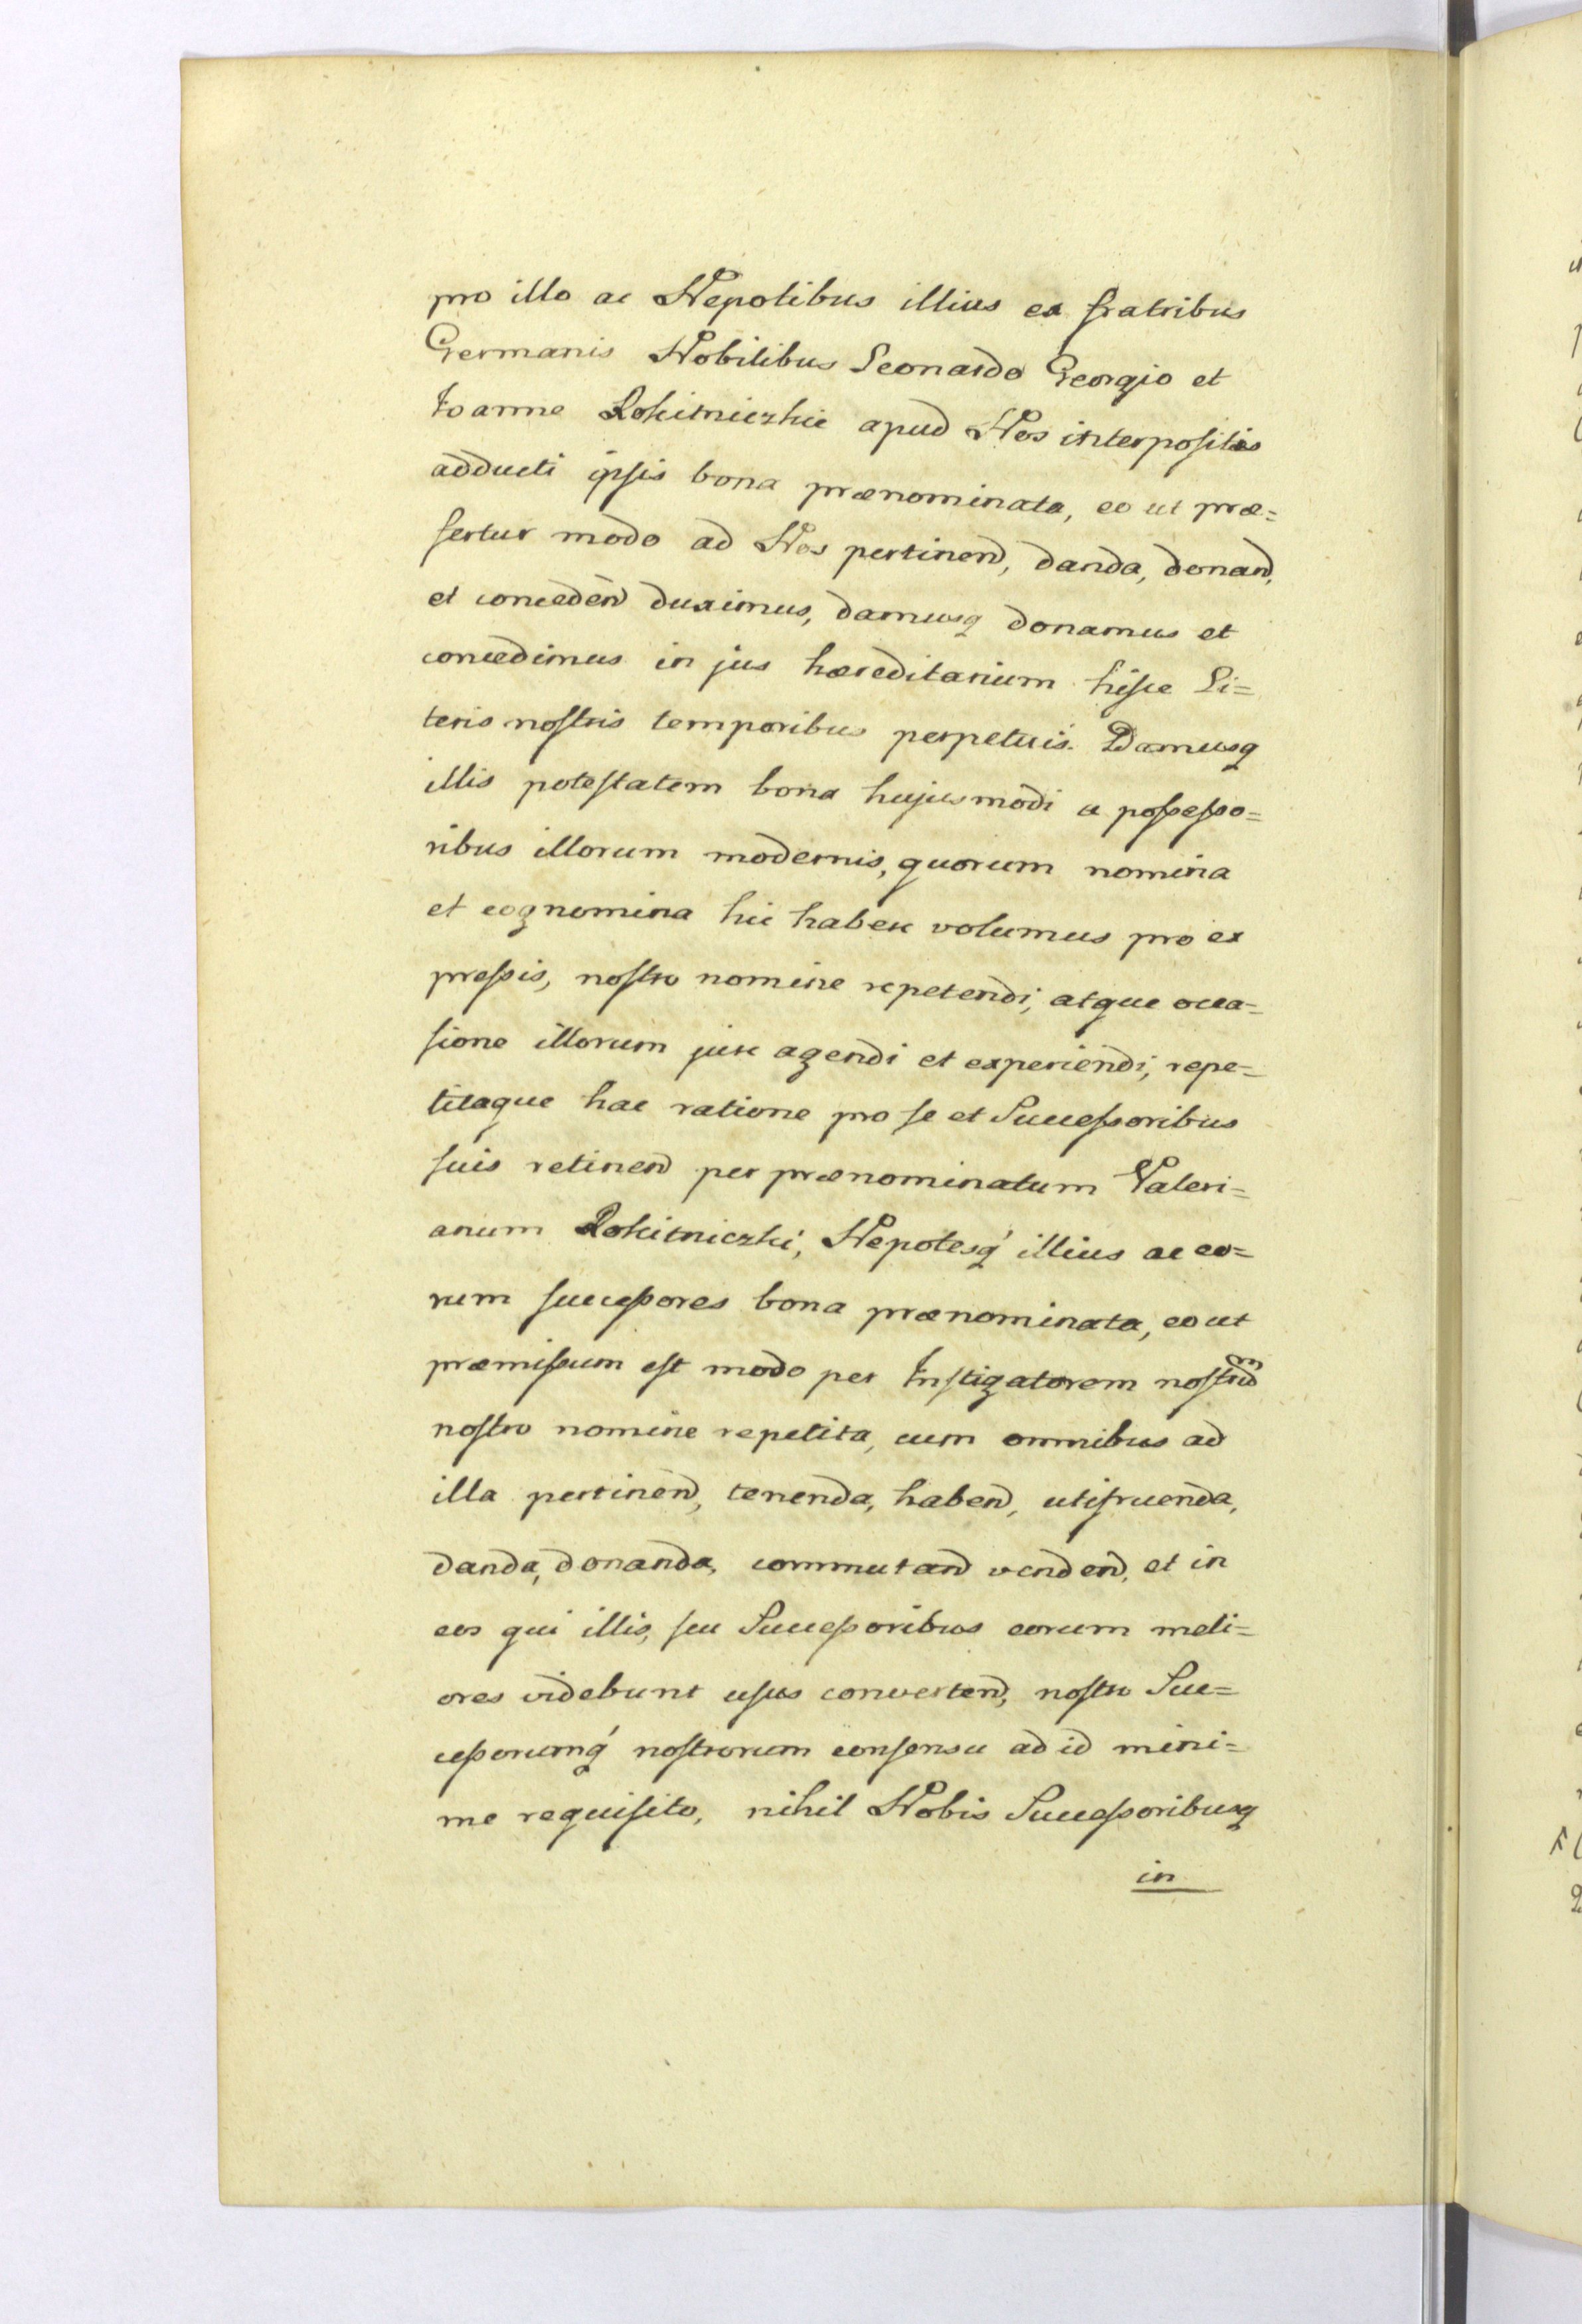 pro illo ac Nepotibus illius ex fratribus
Germanis Nobilibus Leonardo Georgio et
Ioanne Rokitniczkie apud Nos interpositis
adducti ipsis bona prænominata, eo ut præ=
fertur modo ad Nos pertinend, danda, donand,
et conceden̄d duximus, damusq donamus et
concedimus in jus hæreditarium hisce Li=
teris nostris temporibus perpetuis. Damusq
illis potestatem bona hujusmodi a possesso=
ribus illorum modernis, quorum nomina
et cognomina hic habere volumus pro ex
pressis, nostro nomine repetendi, atque occa=
sione illorum jure agendi et experiendi, repe=
titaque hac ratione pro se et Successoribus
suis retinend per prænominatum Valeri=
anum Rokitniczki, Nepotesq́ illius ac eo=
rum successores bona prænominata, eo ut
præmissum est modo per Instigatorem nostrum
nostro nomine repetita, cum omnibus ad
illa pertinend, tenenda, habend, utifruenda,
danda, donanda, commutand vendend, et in
eos qui illis, seu Successoribus eorum meli=
ores videbunt usus convertend, nostro Suc=
cessorumq́ nostrorum consensu ad id mini=
me requisito, nihil Nobis Successoribusq
in